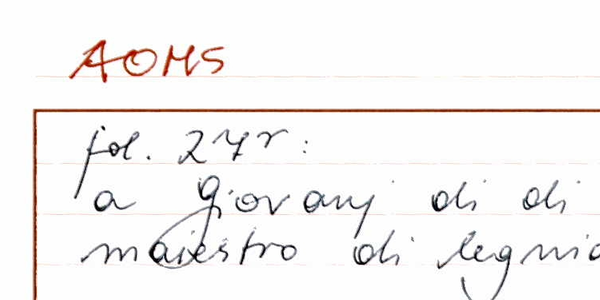 AOMS
fol. 27r:
a giovanj di di
maiestro di legnia